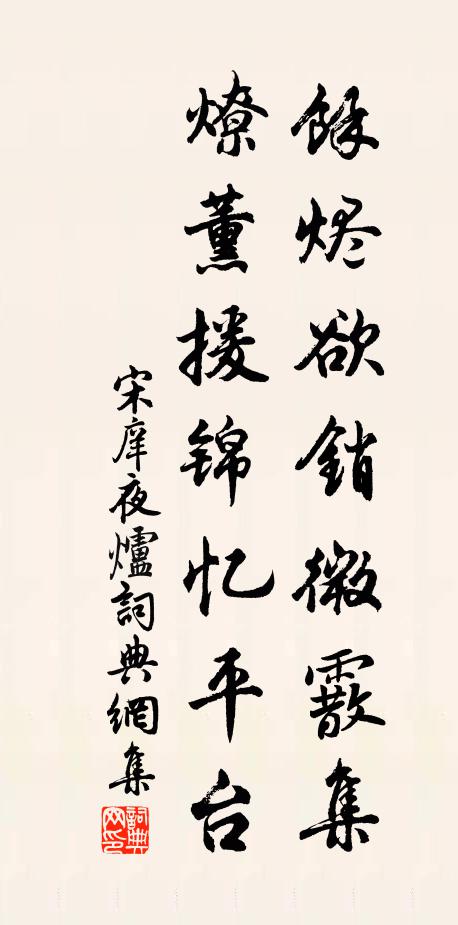 餘烬欲銷微霰集
燎薰援锦忆平台
宋庠夜爐詞典網集
詞典网印